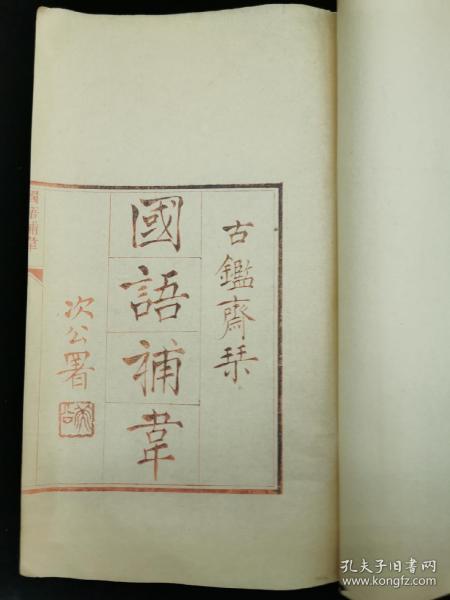 古鑑齋栞
國語補韋
次公署
國語補韋
孔夫子旧书网
www.kongfz.com